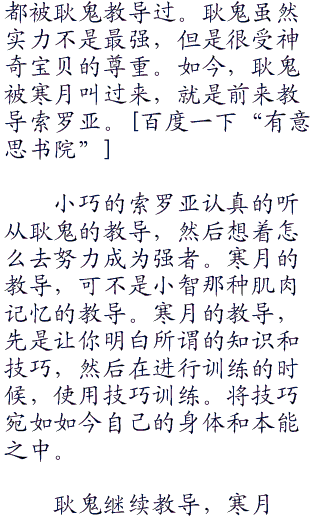 都被耿鬼教导过。耿鬼虽然
实力不是最强，但是很受神
奇宝贝的尊重。如今，耿鬼
被寒月叫过来，就是前来教
导索罗亚。[百度一下“有意
思书院”]
小巧的索罗亚认真的听
从耿鬼的教导，然后想着怎
么去努力成为强者。寒月的
教导，可不是小智那种肌肉
记忆的教导。寒月的教导，
先是让你明白所谓的知识和
技巧，然后在进行训练的时
候，使用技巧训练。将技巧
宛如如今自己的身体和本能
之中。
耿鬼继续教导，寒月